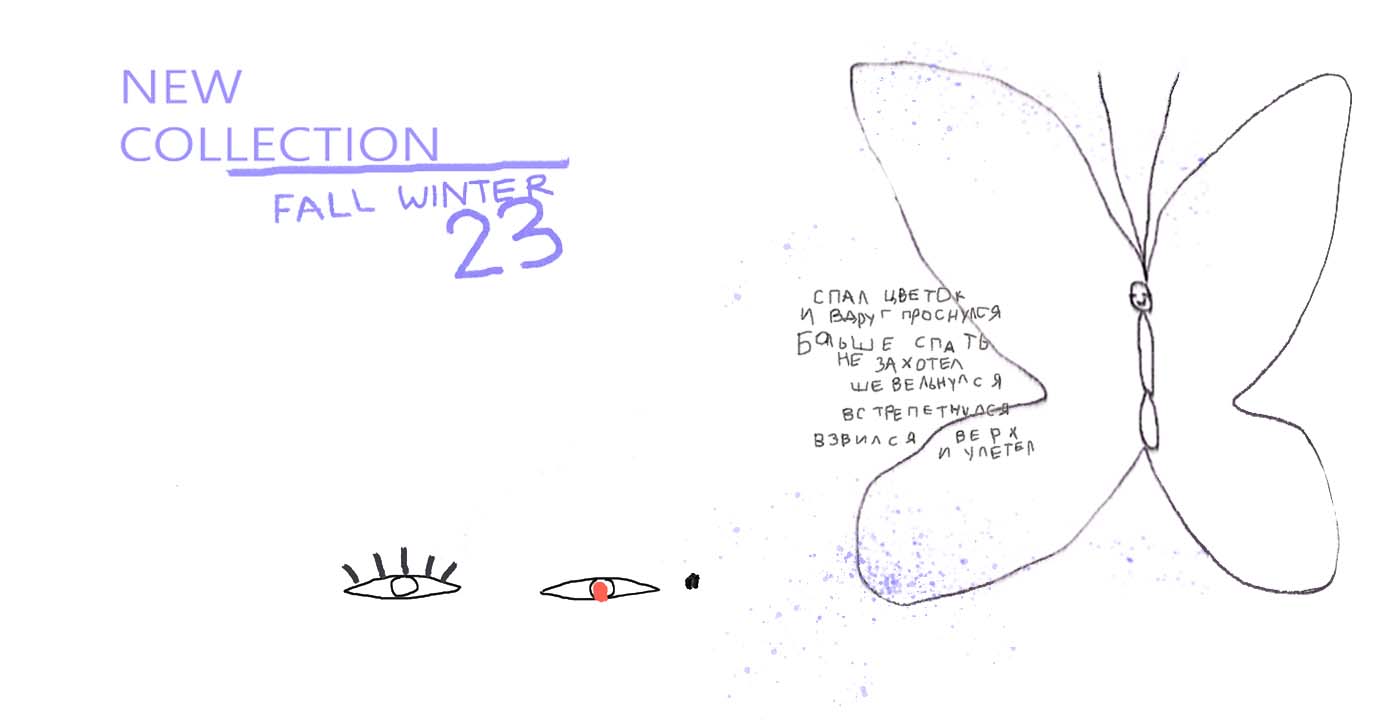 NEW
COLLECTION
FALL WINTER
23
СПАЛ ЦВЕТОК
И ВДРУГ ПРОСНУЛСЯ
БОЛЬШЕ СПАТЬ
НЕ ЗАХОТЕЛ
ШЕВЕЛЬНУЛСЯ
ВСТРЕПЕТНУЛСЯ
ВЗВИЛСЯ ВЕРХ
И УЛЕТЕЛ